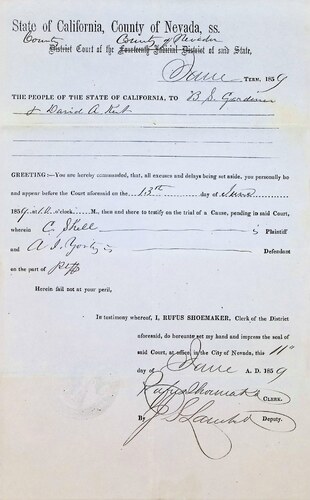 State of California, County of Nevada, ss.
County County of Nevada
District Court of the Fourteenth Judicial District of said State,
June TERM, 1859
THE PEOPLE OF THE STATE OF CALIFORNIA, TO B. S. Gardiner
& David A. Kent
GREETING:—You are hereby commanded, that, all excuses and delays being set aside, you personally be
and appear before the Court aforesaid on the 13th day of June
1859, at o'clock M., then and there to testify on the trial of a Cause, pending in said Court,
wherein C. Shell Plaintiff
and A. J. Defendant
on the part of plff
Herein fail not at your peril,
In testimony whereof, I, RUFUS SHOEMAKER, Clerk of the District
aforesaid, do hereunto set my hand and impress the seal of
said Court, at office in the City of Nevada, this 11th
day of June A. D. 1859
Rufus Shoemaker CLERK.
By Deputy.